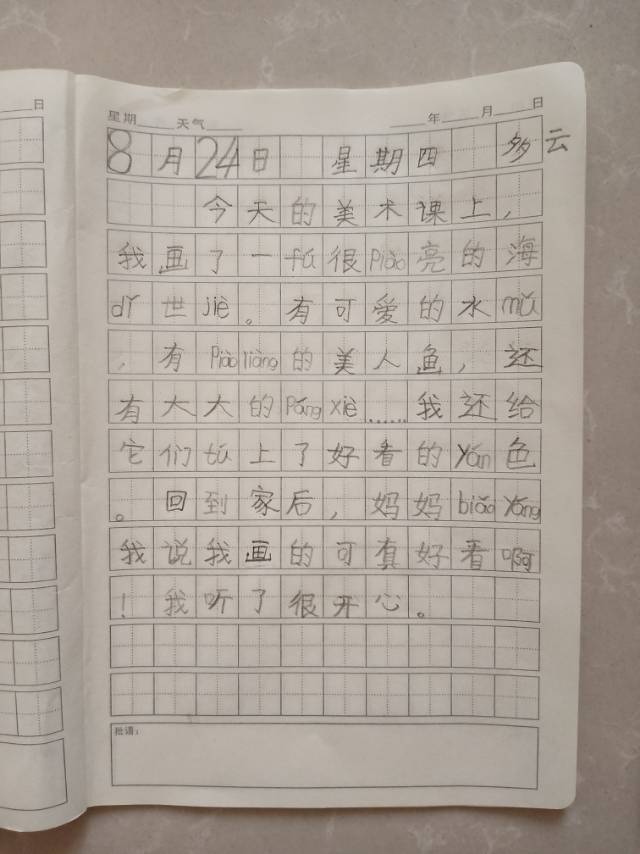 日
星期 天气 年 月 日
8月24日 星期四 多云
今天的美术课上，
我画了一fú很piào亮的海
dǐ世jiè。有可爱的水mǔ
，有piàoliàng的美人鱼，还
有大大的pángxiè……我还给
它们tú上了好看的yán色
。回到家后，妈妈biǎoyáng
我说我画的可真好看啊
！我听了很开心。
批语：